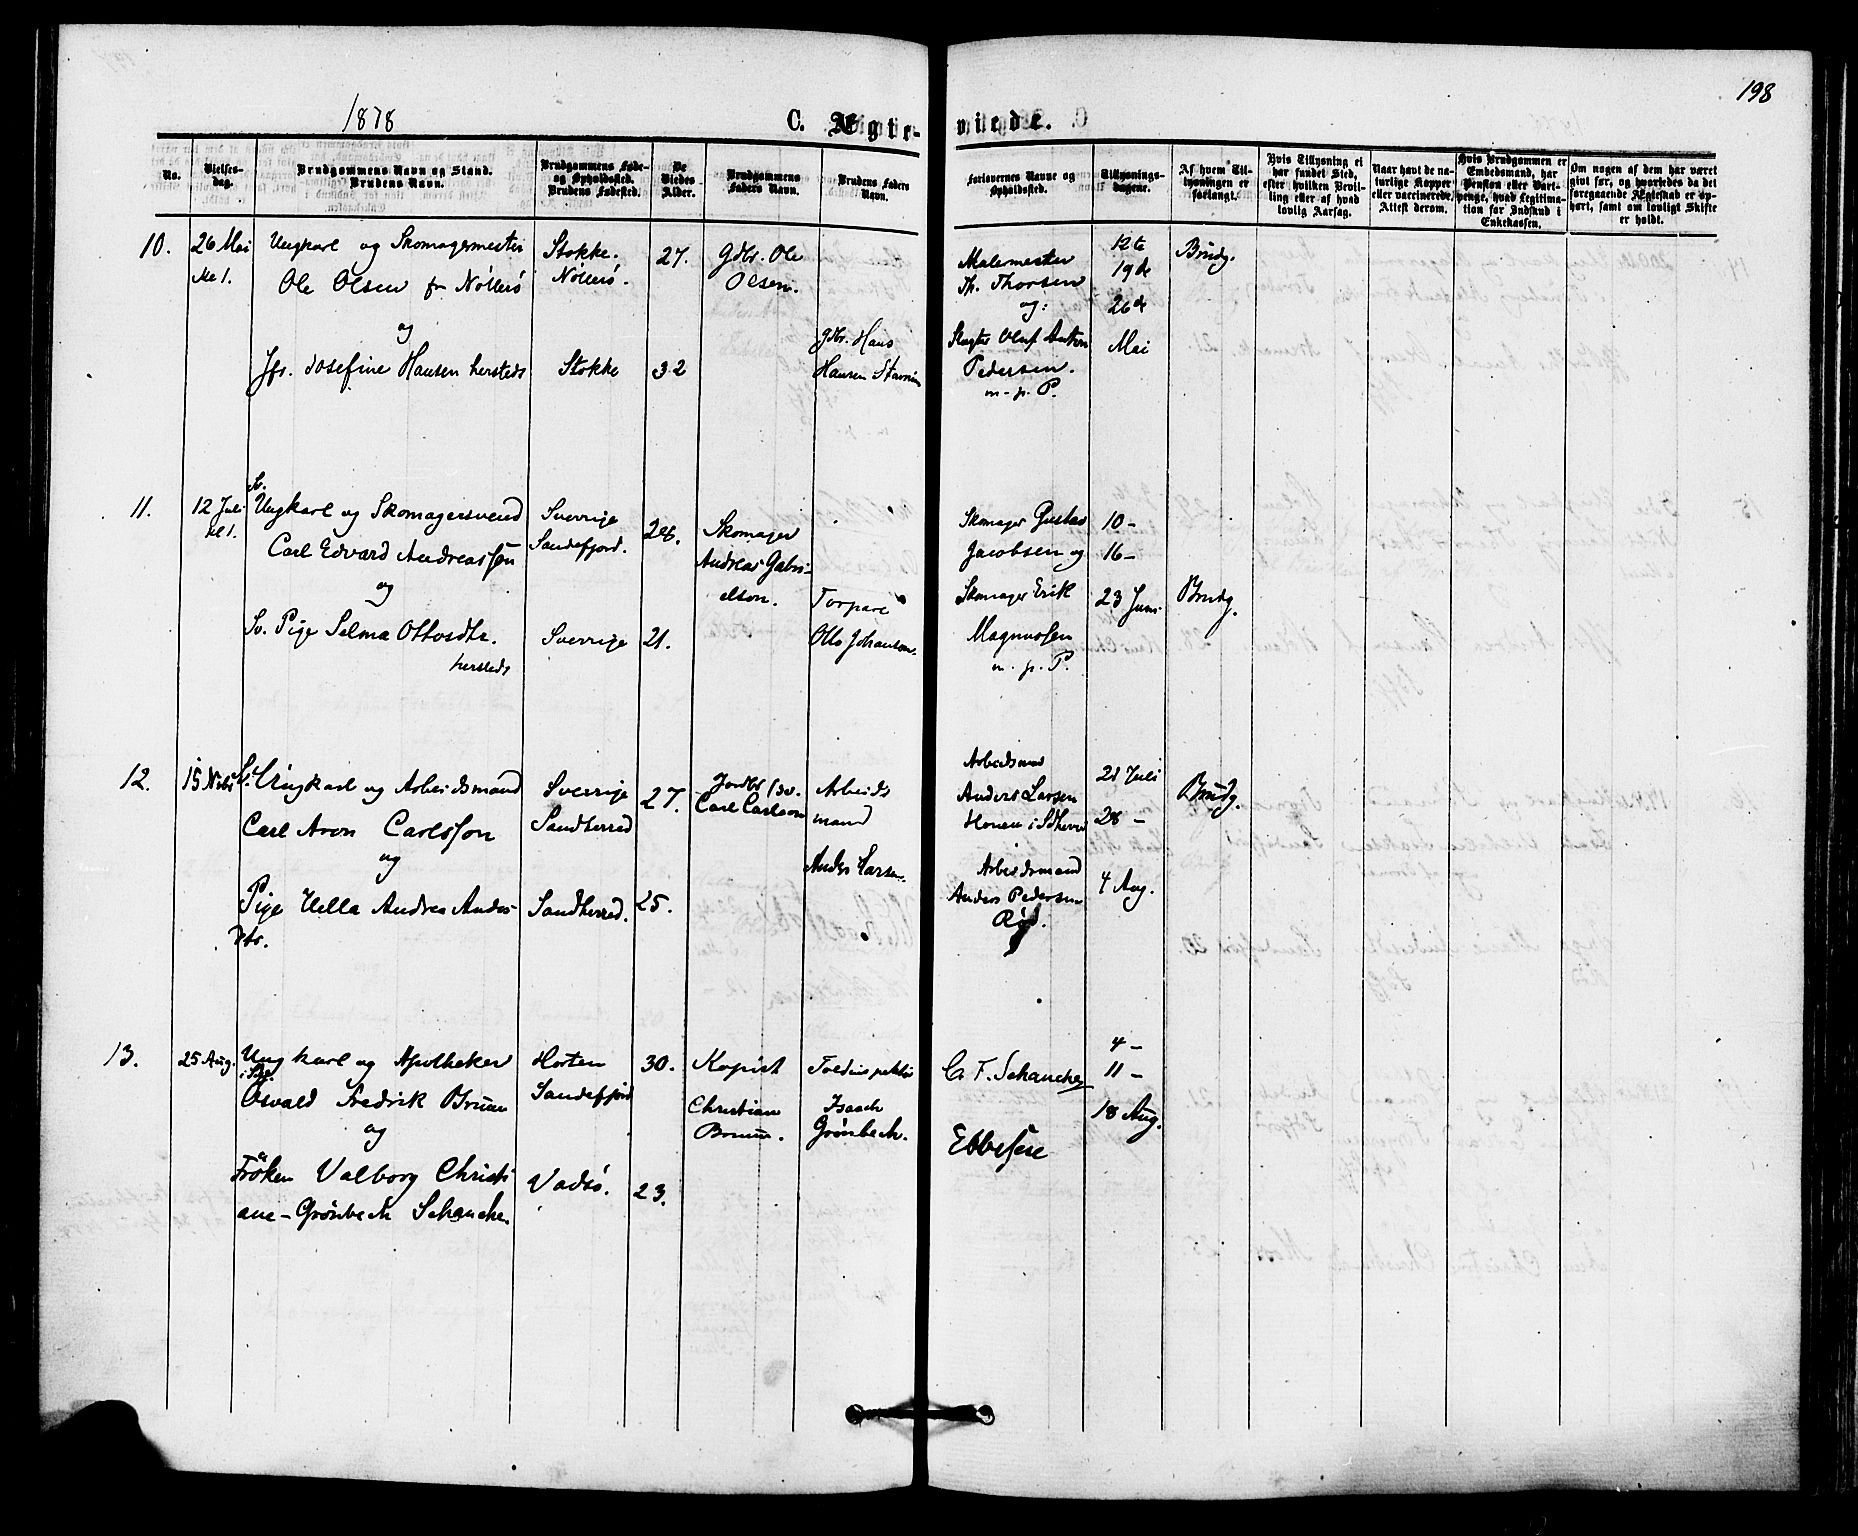 198
1878
C. Ægte-viede.
No.
Vielses-dag.
Brudgommens Navn og Stand.
Brudens Navn.
Brudgommens Føde- og Opholdssted.
Brudens Fødested.
De Viedes Alder.
Brudgommens Faders Navn.
Brudens Faders Navn.
Forlovernes Navne og Opholdssted.
Tillysnings-dagene.
Af hvem Tillysningen er forlangt.
Hvis Tillysning ei har fundet Sted, efter hvilken Bevilling eller af hvad lovlig Aarsag.
Naar havt de naturlige Kopper eller vaccinerede. Attest derom.
Hvis Brudgommen er Embedsmand, har Pension eller Vartpenge, hvad Legitimation for Indskud i Enkekassen.
Om nogen af dem har været givt før, og hvorledes da det foregaaende Ægteskab er ophørt, samt om lovligt Skifte er holdt.
10.
26 Mai
Kl 1.
Ungkarl og Skomagermester
Ole Olsen fr Nøtterø
og
Jfr. Josefine Hansen hersteds
Stokke.
Nøtterø.
Stokke
27.
32
Gdbr. Ole
Olsen.
Gdbr. Hans
Hansen
Malermester
Th. Thorsen
og:
Slagter Oluf Anton
Pedersen.
m. p. P.
12te
19de
26de
Mai
Brudg.
11.
12 Juli
kl 1.
Sv.
Ungkarl og Skomagersvend
Carl Edvard Andreassen
og
Sv. Pige Selma Ottosdtr.
hersteds
Sverrige
Sandefjord.
Sverrige
28.
21.
Skomager
Andreas Gabri-
elson.
Torpare
Otto Johanson.
Skomager Gustav
Jacobsen og
Skomager Erik
Magnussen
m. p. P.
10 –
16 –
23 Juni
Brudg.
12.
15
Ungkarl og Arbeidsmand
Carl Aron Carlsson
og
Pige Uella Andrea Anders-
dtr.
Sverrige
Sandherred
Sandherred.
27.
25.
Carl Carlson
Arbeids
mand
Anders Larsen.
Arbeidsmand
Anders Larsen
Arbeidsmand
Anders Pedersen
Rød.
21 Juli
28 –
4 Aug.
Brudg.
13.
25 Aug.
Ungkarl og Apotheker
Osvald Fredrik Bruun
og
Frøken Valborg Christi
ane – Grønbech Schanche
Horten
Sandefjord
Vadsø.
30.
23.
Kopist
Christian
Bruun.
Toldinspektør
Isaach
Grønbech.
C. F. Schanche
Ebbesen
4 –
11 –
18 Aug.